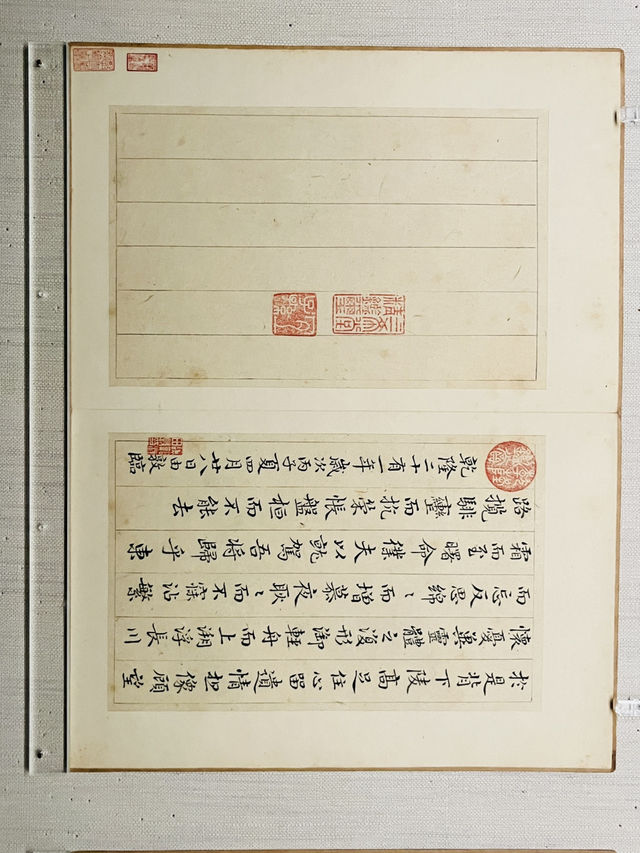 於是背下陵高足往心留遺情想像顧望
懷憂冀靈體之復形御輕舟而上溯浮長川
而忘反思綿〻而增慕夜耿〻而不寐沾繁
霜而至曙命僕夫以就駕吾將歸乎東
路攬騑轡而抗策悵盤桓而不能去
乾隆二十有一年歲次丙子夏四月廿八日由敦臨
三希堂精鑑璽
宜子孫